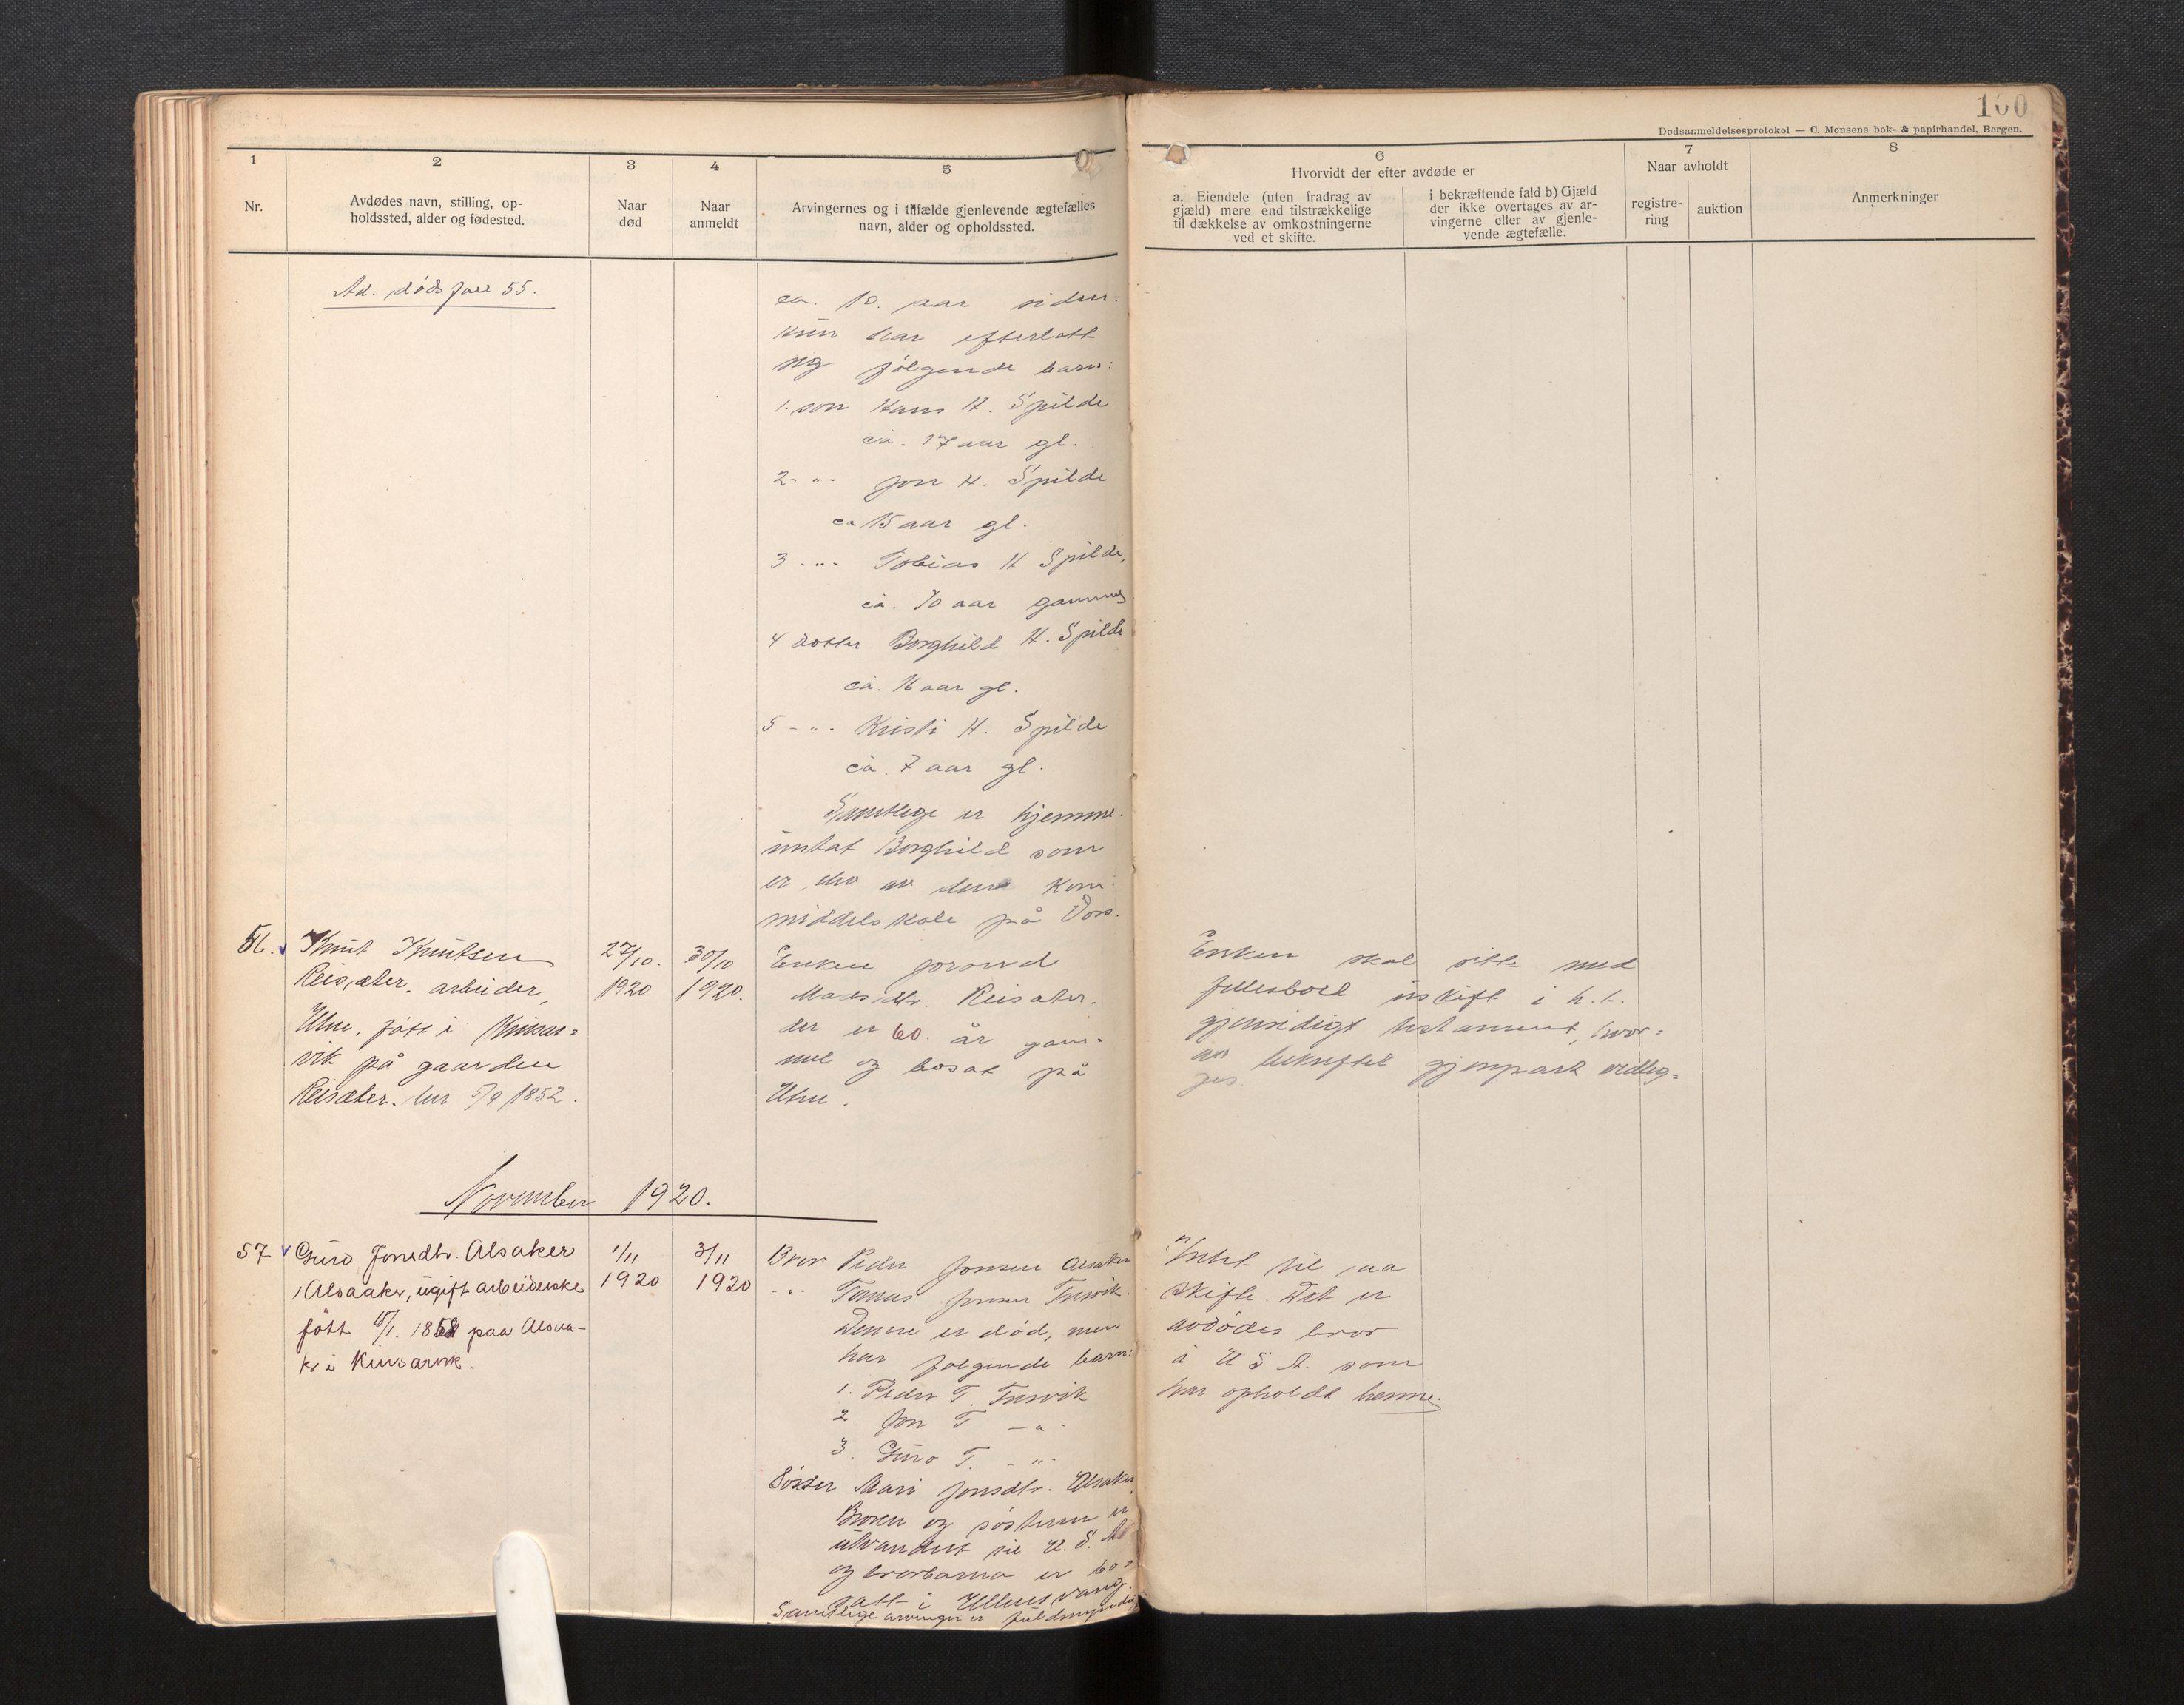 100
Dødsanmeldelsesprotokol — C. Monsens bok- & papirhandel, Bergen.
1
2
3
4
5
6
7
8
Nr.
Avdødes navn, stilling, op-
holdssted, alder og fødested.
Naar
død
Naar
anmeldt
Arvingernes og i tilfælde gjenlevende ægtefælles
navn, alder og opholdssted.
Hvorvidt der efter avdøde er
a. Eiendele (uten fradrag av
gjæld) mere end tilstrækkelige
til dækkelse av omkostningerne
ved et skifte.
i bekræftende fald b) Gjæld
der ikke overtages av ar-
vingerne eller av gjenle-
vende ægtefælle.
Naar avholdt
registre-
ring
auktion
Anmerkninger
Ad. dødsfall 55.
ca. 10. aar siden.
Hun har efterlatt
sig følgende barn:
1. son Hans H. Spilde
ca. 17 aar gl.
2 - " - Jon H. Spilde
ca 15 aar gl.
3 - " - Tobias H Spilde,
ca. 10 aar gammel
4 dotter Borghild H. Spilde
ca. 16 aar gl.
5 - " - Kristi H. Spilde
ca. 7 aar gl.
Samtlige er hjemme.
untat Borghild som
er elev av den kom.
middelskole på Voss.
56. Knut Knutsen
Reisæter, arbeider,
Utne, født i Kinsar=
vik på gaarden
Reisæter. den 5/9 1852.
27/10.
1920
30/10
1920.
Enken
Madsdtr. Reisæter.
der er 60. år gam-
mel og bosat på
Utne.
Enken skal sitte med
fellesboet uskift i h.t.
gjensidigt testament, hvor=
av bekreftet gjenpart vedleg=
ges.
November 1920.
57 Guro Jonsdtr. Alsaker
Alsaaker, ugift arbeiderske
født /1. 1858 paa Alsaa-
ker i Kinsarvik.
1/11
1920
3/11
1920
Bror Peder Jonsen Alsaker
- " - Tomas Jonsen
Denne er død, men
har følgende barn:
1. Peder T.
2. Jon T - " -
3. Guro T. - " -
Søster Mari Jonsdtr. Alsaker.
Broren og søsteren er
utvandret til U.S.A.
og brorbarna er bo=
satt i Ullensvang.
Samtlige arvinger er fuldmyndig
Intet til aa
skifte. Det er
avdødes bror
i U S A. som
har opholdt henne.